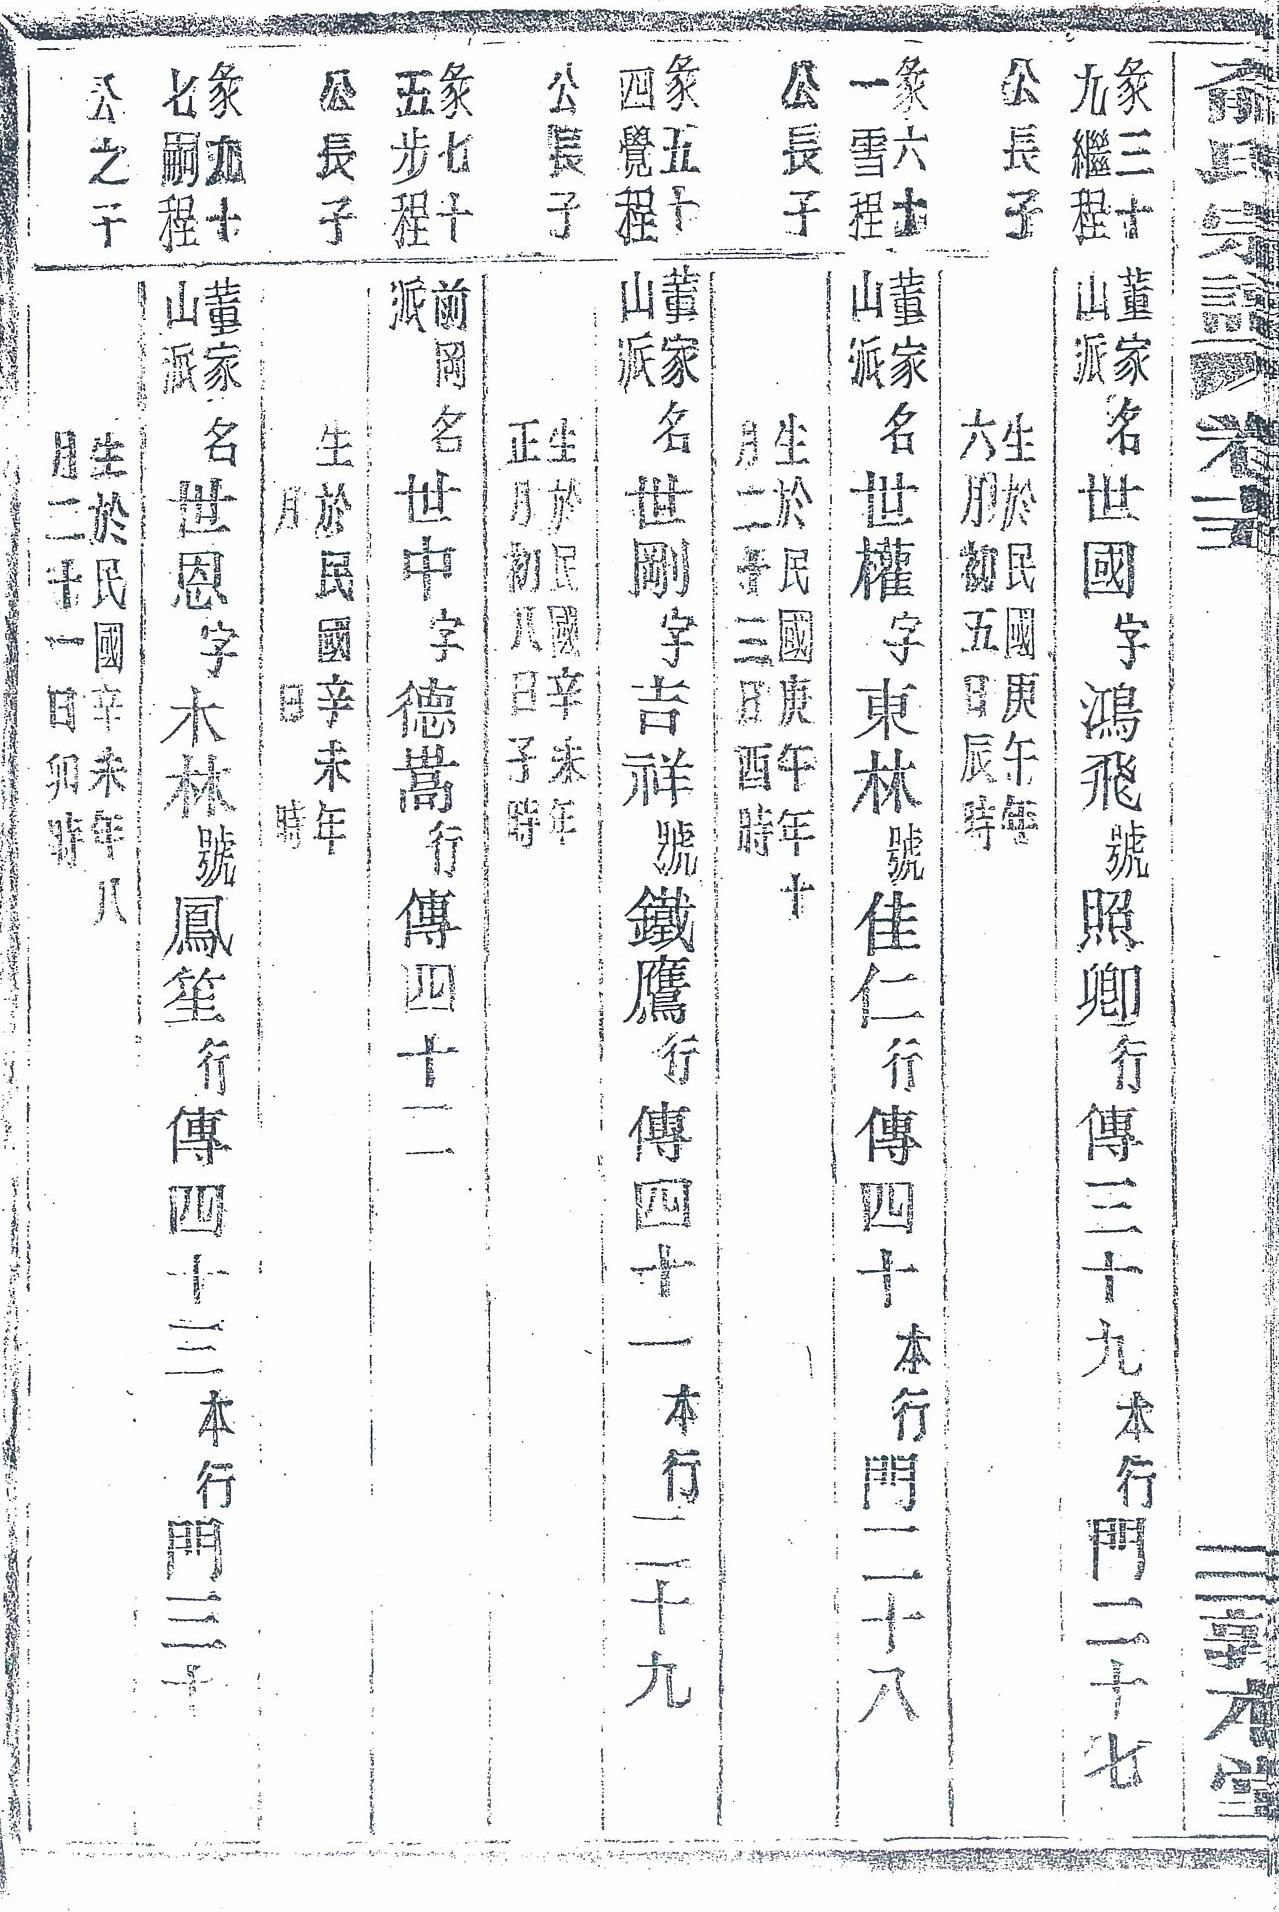 俞氏宗譜 卷三 三 敦本堂
彖三十九繼程公長子
董家山派 名世國字鴻飛號照卿行傳三十九本行門二十七
生於民國庚午年六月初五日辰時
彖六十一雪程公長子
董家山派 名世權字東林號佳仁行傳四十本行門二十八
生於民國庚午年十月二十三日酉時
彖五十四覺程公長子
董家山派 名世剛字吉祥號鐵鷹行傳四十一本行二十九
生於民國辛未年正月初八日子時
彖七十五步程公長子
前岡派 名世中字德嵩行傳四十二
生於民國辛未年 月 日 時
彖九十七嗣程公之子
董家山派 名世恩字木林號鳳笙行傳四十三本行門三十
生於民國辛未年八月二十一日卯時